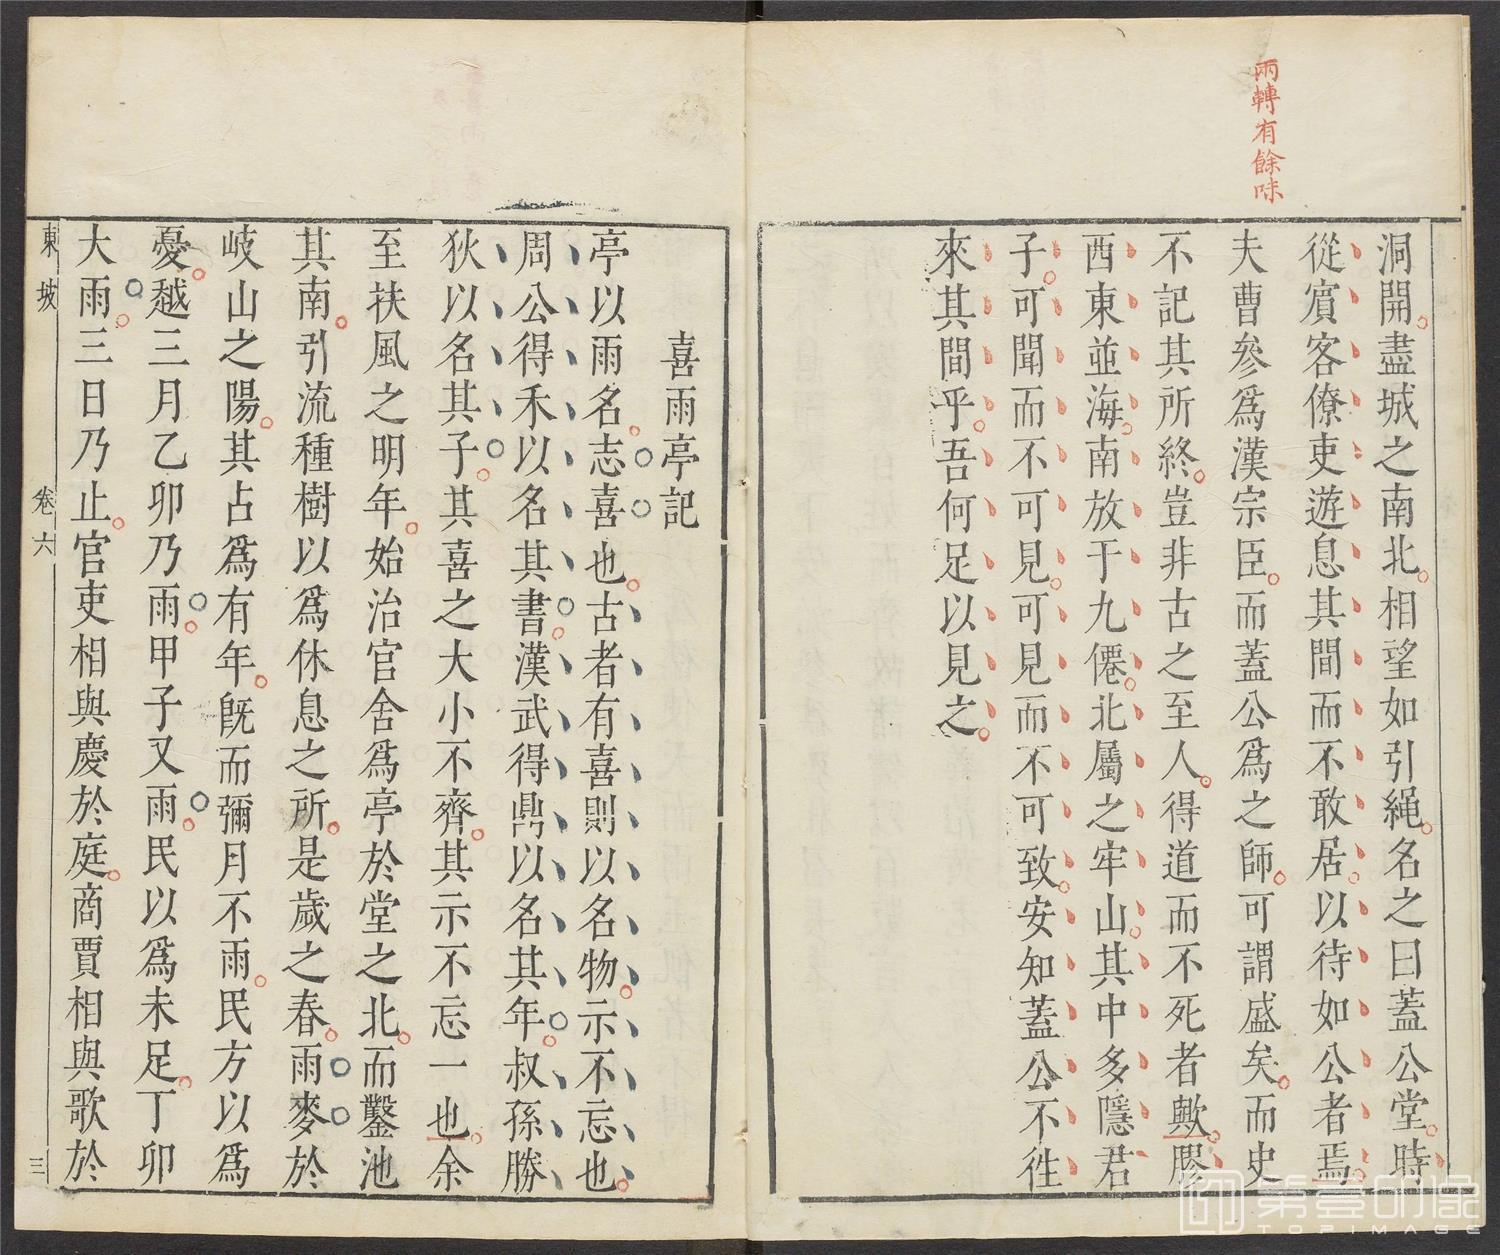 兩轉有餘味
洞開盡城之南北相望如引繩名之曰蓋公堂時
從賓客僚吏遊息其間而不敢居以待如公者焉
夫曹參爲漢宗臣而蓋公爲之師可謂盛矣而史
不記其所終豈非古之至人得道而不死者歟膠
西東並海南放于九僊北屬之牢山其中多隱君
子可聞而不可見可見而不可致安知蓋公不徃
來其間乎吾何足以見之
喜雨亭記
亭以雨名志喜也古者有喜則以名物示不忘也
周公得禾以名其書漢武得鼎以名其年叔孫勝
狄以名其子其喜之大小不齊其示不忘一也余
至扶風之明年始治官舍爲亭於堂之北而鑿池
其南引流種樹以爲休息之所是歲之春雨麥於
岐山之陽其占爲有年旣而彌月不雨民方以爲
憂越三月乙卯乃雨甲子又雨民以爲未足丁卯
大雨三日乃止官吏相與慶於庭商賈相與歌於
東坡
卷六
三
第壹印像
TOPIMAGE